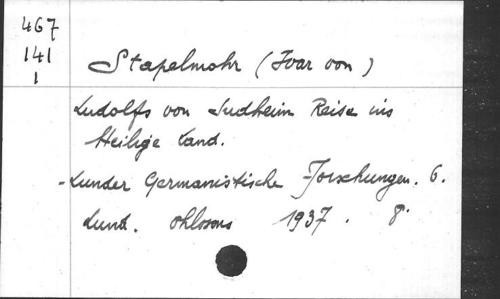 467
141
1
Stapelmohr (Ivar von)
Ludolfs von Sudheim Reise ins
Heilige Land.
- Lunder Germanistische Forschungen. 6.
Lund. Ohlssons 1937. 8°